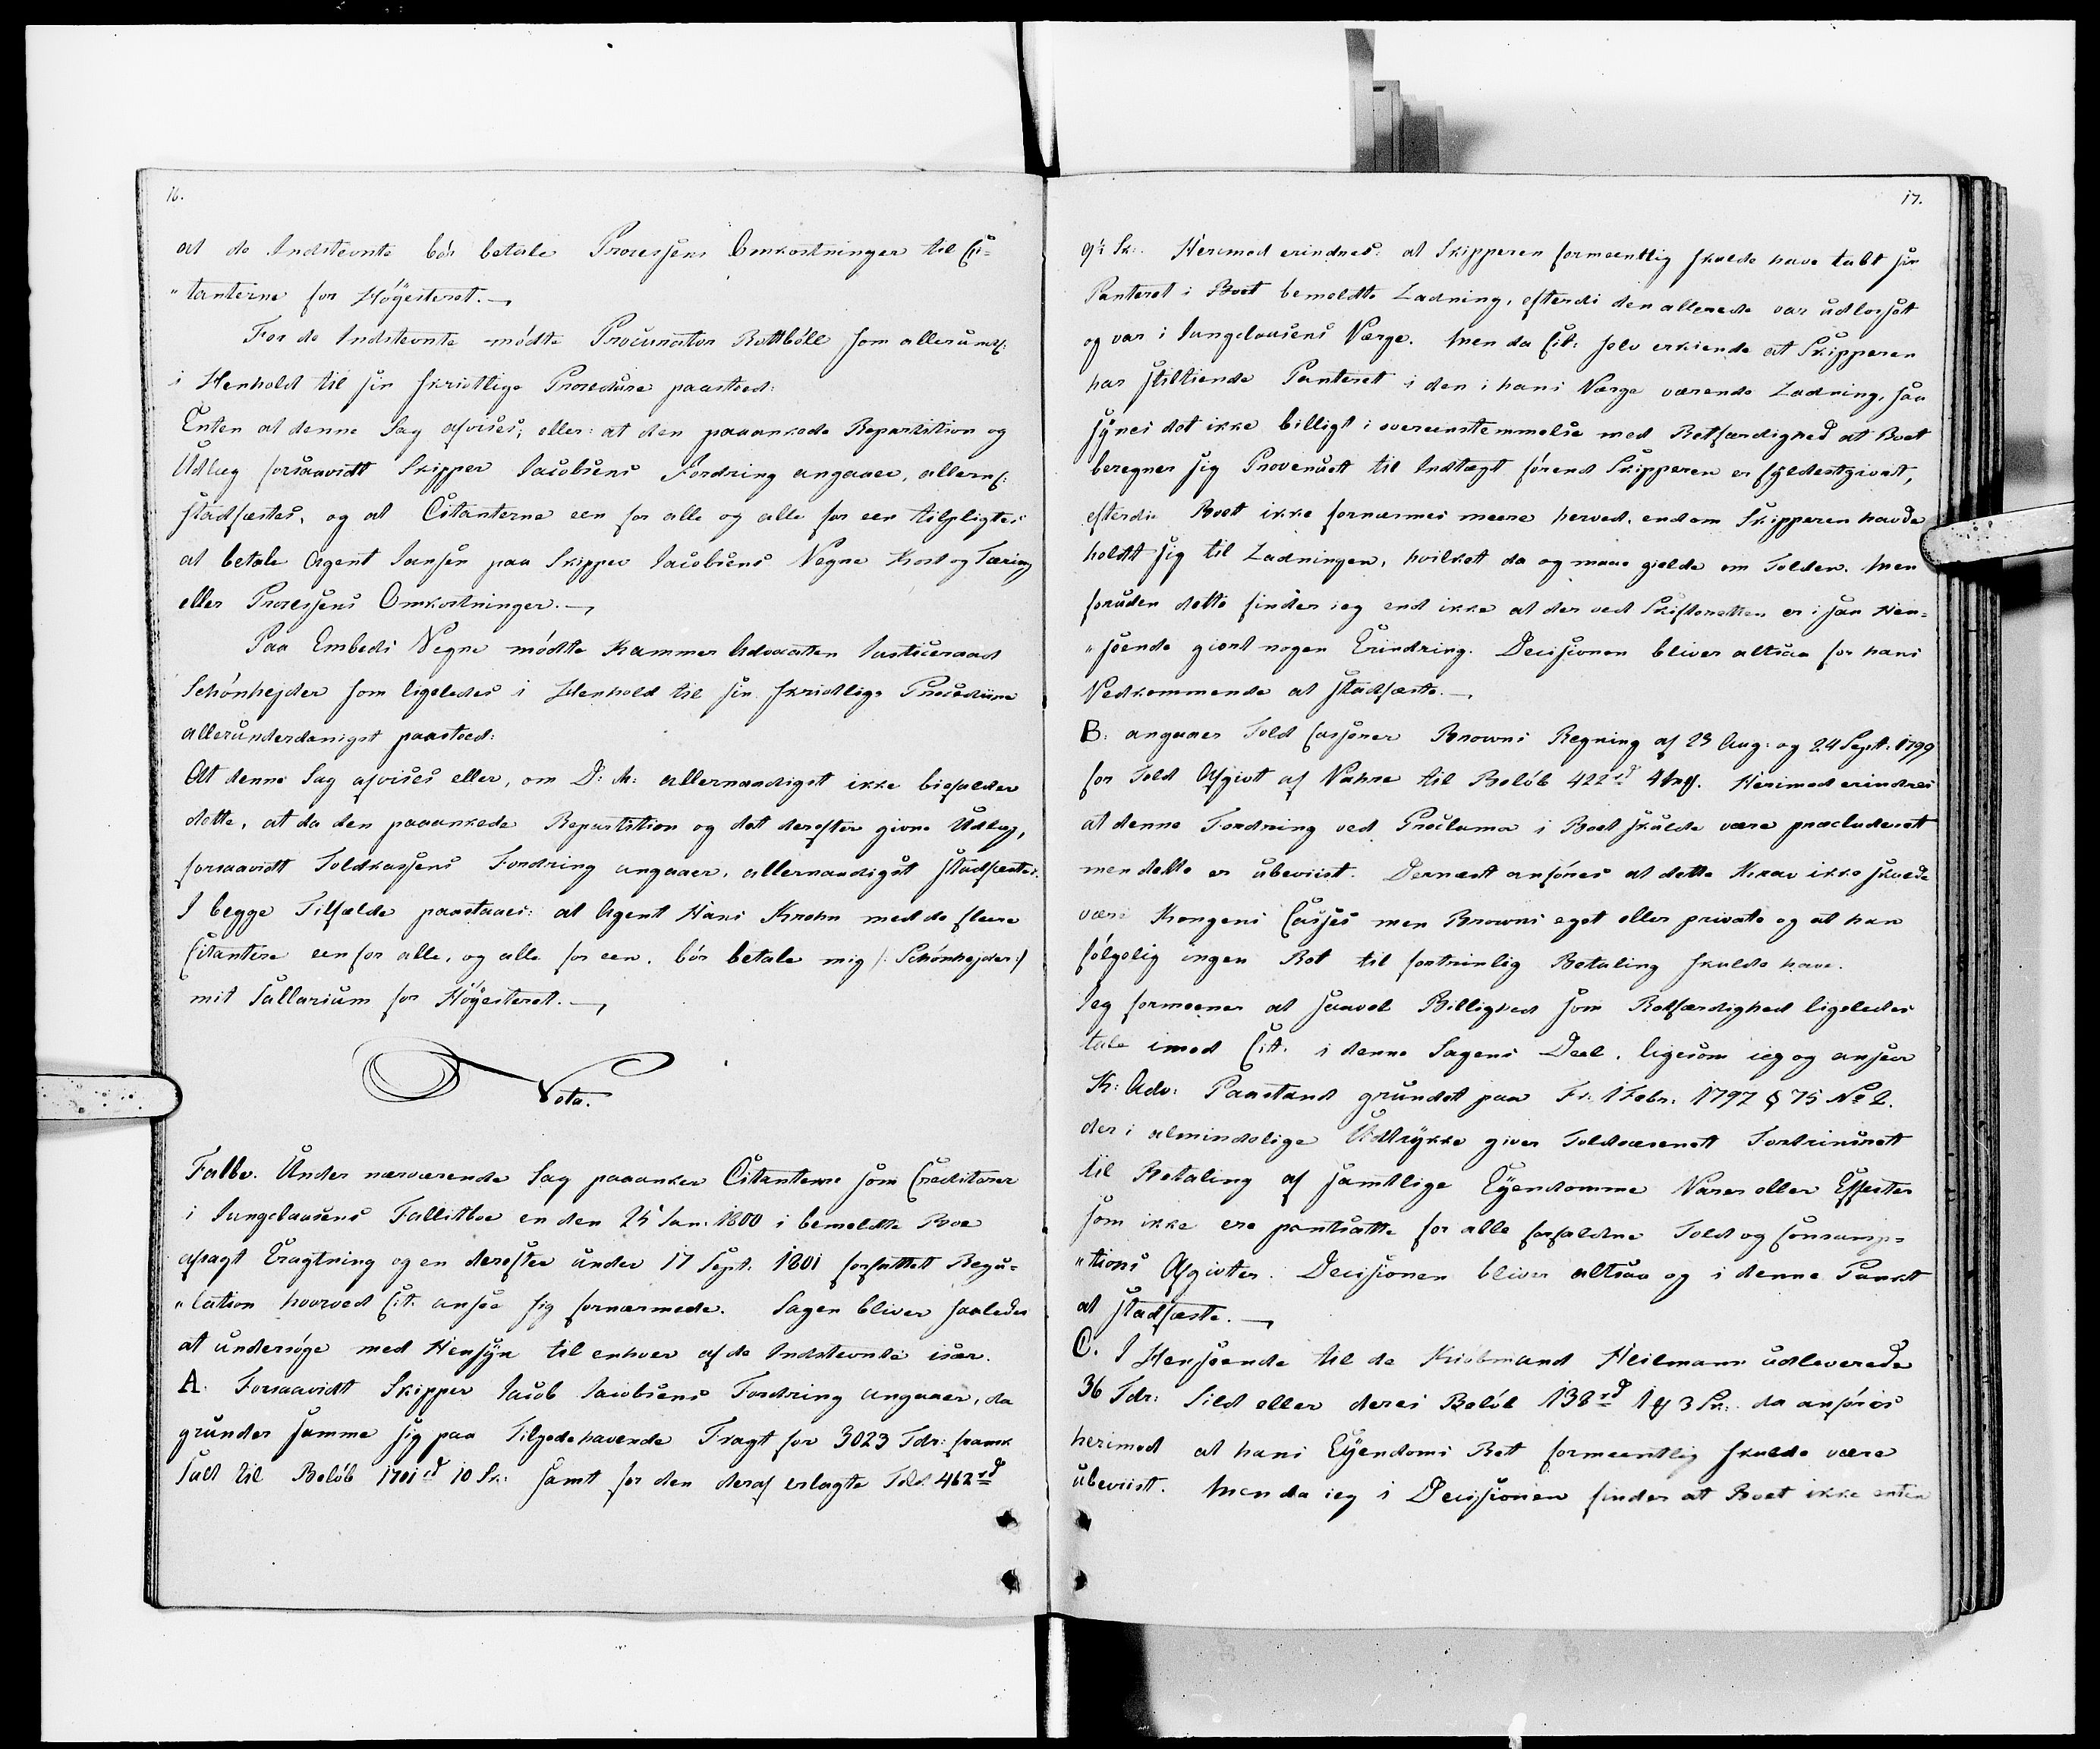 16.
at de Indstevnte bör betale Processens Omkostninger til Ci-
"tanterne for Höyesteret.
For de Indstevnte mödte Procurator Rottböll som allerund:
i Henhold til sin skriftlige Procedure paastod:
Enten at denne Sag afvises, eller: at den paaankede Repartition og
Udlæg forsaavidt Skipper Jacobsens Fordring angaaer, allern:
stadfæstes, og at Citanterne een for alle og alle for een tilpligtes
at betale Agent Jansen paa Skipper Jacobsens Vegne Kost og Tæring
eller Processens Omkostninger.
Paa Embeds Vegne mödte Kammer Advocaten Justiceraad
Schönhejder som ligeledes i Henhold til sin skriftlige Procedure
allerunderdanigst paastod:
At denne Sag afvises eller, om D: M: allernaadigst ikke bifalder
dette, at da den paaankede Repartition og det derefter givne Udlæg,
forsaavidt Toldkassens Fordring angaaer, allernaadigst stadfæstes.
I begge Tilfælde paastaaes: at Agent Hans Krohn med de flere
Citantere een for alle, og alle for een, bör betale mig /: Schönhejder :/
mit Sallarium for Höyesteret.
Vota.
Falbe. Under nærværende Sag paaanker Citanterne som Creditorer
i Jungclausens Fallitboe en den 25 Jan: 1800 i bemeldte Boe
afsagt Eragtning og en derefter under 17 Sept. 1801 forfattet Regu-
"lation hvorved Cit. ansee sig fornærmede. Sagen bliver saaledes
at undersöge med Hensyn til enhver af de Indstevnte især.
A. Forsaavidt Skipper Jacob Jacobsens Fordring angaaer, da
grunder samme sig paa Tilgodehavende Fragt for 3023 Tdr: fransk
Salt til Belöb 1701 rd 10 Sk: samt for den deraf erlagte Told 462 rd
17.
9½ Sk: Herimod erindres: at Skipperen formeentlig skulde have tabt sin
Panteret i Boet bemeldte Ladning, efterdi den allerede var udlosset
og var i Jungclausens Værge. Men da Cit: selv erkiende at Skipperen
har stiltiende Panteret i den i hans Værge værende Ladning, saa
synes det ikke billigt i overeenstemmelse med Retfærdighed at Boet
beregner sig Provenuet til Indtægt förend Skipperen er fyldestgiort,
efterdi Boet ikke fornærmes meere herved, end om Skipperen havde
holdt sig til Ladningen, hvilket da og maae gielde om Tolden. Men
foruden dette finder ieg end ikke at der ved Skifteretten er i saa Hen-
"seende giort nogen Erindring. Decisionen bliver altsaa for hans
Vedkommende at stadfæste.
B: angaaer Told Casserer Browns Regning af 23 Aug: og 24 Sept: 1799
for Told Afgivt af Vahre til Belöb 422 rd 4 mk. Herimod erindres
at denne Fordring ved Proclama i Boet skulde være præcluderet
men dette er ubeviist. Dernæst anföres at dette Krav ikke skulde
være Kongens Casses men Browns eget eller private og at han
fölgelig ingen Ret til fortrinlig Betaling skulde have.
Jeg formeener at saavel Billighed som Retfærdighed ligeledes
tale imod Cit. i denne Sagens Deel, ligesom ieg og anseer
K: Adv: Paastand grundet paa Fr: 1 Febr. 1797 § 75 No 2.
der i almindelige Udtrykke giver Toldvæsenet Fortrinsret
til Betaling af samtlige Eyendomme Varer eller Effecter
som ikke ere pantsatte for alle forfaldne Told og Consump-
"tions Afgivter. Decisionen bliver altsaa og i denne Punkt
at stadfæste.
C. I Henseende til de Kiöbmand Heilmann udleverede
36 Tdr: Sild eller deres Belöb 138 rd 1 mk 3 Sk: da anföres
herimod at hans Eyendoms Ret formeentlig skulde være
ubeviist. Men da ieg i Decisionen finder at Boet ikke enten